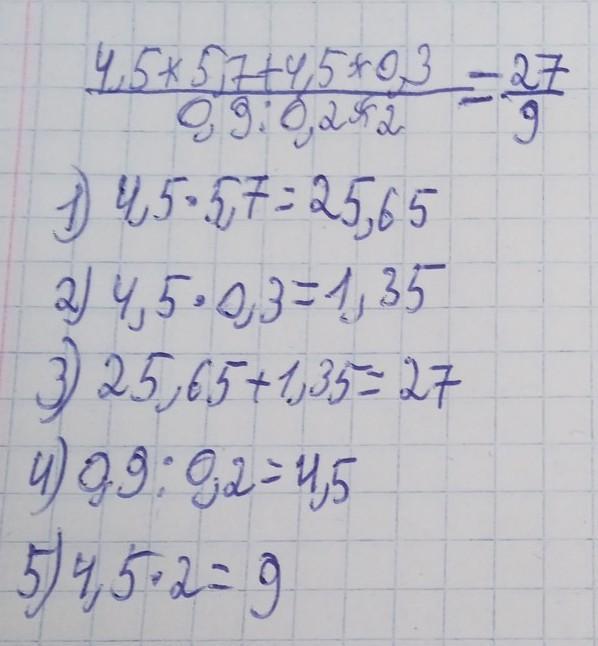 4,5*5,7+4,5*0,3 = 27
0,9:0,2*2 9
1) 4,5·5,7=25,65
2) 4,5·0,3=1,35
3) 25,65+1,35=27
4) 0,9:0,2=4,5
5) 4,5·2=9